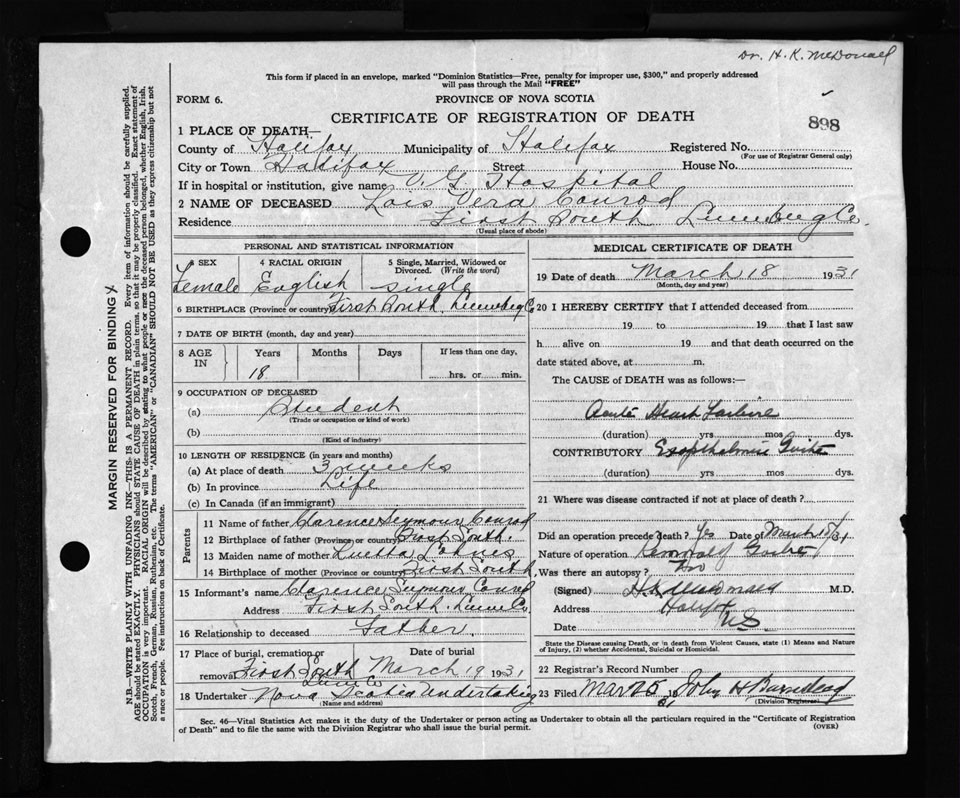 Dr. H. K. McDonald
This form if placed in an envelope, marked "Dominion Statistics—Free, penalty for improper use, $300," and properly addressed
will pass through the Mail "FREE"
FORM 6.
PROVINCE OF NOVA SCOTIA
CERTIFICATE OF REGISTRATION OF DEATH
898
1 PLACE OF DEATH—
County of Halifax Municipality of Halifax Registered No.
(For use of Registrar General only)
City or Town Halifax Street House No.
If in hospital or institution, give name V. G. Hospital
2 NAME OF DECEASED Lois Vera Conrad
Residence First South Lunenburg Co.
(Usual place of abode)
MARGIN RESERVED FOR BINDING
N.B.—WRITE PLAINLY WITH UNFADING INK—THIS IS A PERMANENT RECORD. Every item of information should be carefully supplied.
AGE should be stated EXACTLY. PHYSICIANS should STATE CAUSE OF DEATH in plain terms, so that it may be properly classified. Exact statement of
OCCUPATION is very important. RACIAL ORIGIN will be described by stating to what people or race the deceased person belonged, whether English, Irish,
Scotch, French, German, Russian, Ruthenian, etc. The terms "AMERICAN" or "CANADIAN" SHOULD NOT BE USED as they express citizenship but not
a race or people. See instructions on back of Certificate.
PERSONAL AND STATISTICAL INFORMATION
3 SEX 4 RACIAL ORIGIN 5 Single, Married, Widowed or
Divorced. (Write the word)
Female English Single
6 BIRTHPLACE (Province or country) First South, Lunenburg Co
7 DATE OF BIRTH (month, day and year)
8 AGE IN Years Months Days If less than one day,
18 hrs. or min.
9 OCCUPATION OF DECEASED
(a) Student
(Trade or occupation or kind of work)
(b)
(Kind of industry)
10 LENGTH OF RESIDENCE (in years and months)
(a) At place of death 3 weeks
(b) In province Life
(c) In Canada (if an immigrant)
Parents
11 Name of father Clarence Seymour Conrad
12 Birthplace of father (Province or country) First South.
13 Maiden name of mother Luetta
14 Birthplace of mother (Province or country) First South,
15 Informant's name Clarence Seymour Conrad
Address First South. Lunen Co.
16 Relationship to deceased Father.
17 Place of burial, cremation or Date of burial
removal First South March 19 1931
Lun. Co
18 Undertaker Nova Scotia Undertaking
(Name and address)
MEDICAL CERTIFICATE OF DEATH
19 Date of death March 18 1931
(Month, day and year)
20 I HEREBY CERTIFY that I attended deceased from
19 to 19 that I last saw
h alive on 19 and that death occurred on the
date stated above, at m.
The CAUSE of DEATH was as follows:—
Acute Heart Failure
(duration) yrs mos dys.
CONTRIBUTORY Exopthalmic Goitre
(duration) yrs. mos. dys.
21 Where was disease contracted if not at place of death?
Did an operation precede death? Yes Date of March 31
Nature of operation Removal of Goitre
Was there an autopsy? No
(Signed) H K MacDonald M.D.
Address Halifax
NS
Date
State the Disease causing Death, or in death from Violent Causes, state (1) Means and Nature
of Injury, (2) whether Accidental, Suicidal or Homicidal.
22 Registrar's Record Number
23 Filed Mar 25 31 John H Barnstead
(Division Registrar)
Sec. 46—Vital Statistics Act makes it the duty of the Undertaker or person acting as Undertaker to obtain all the particulars required in the "Certificate of Registration
of Death" and to file the same with the Division Registrar who shall issue the burial permit.
(OVER)